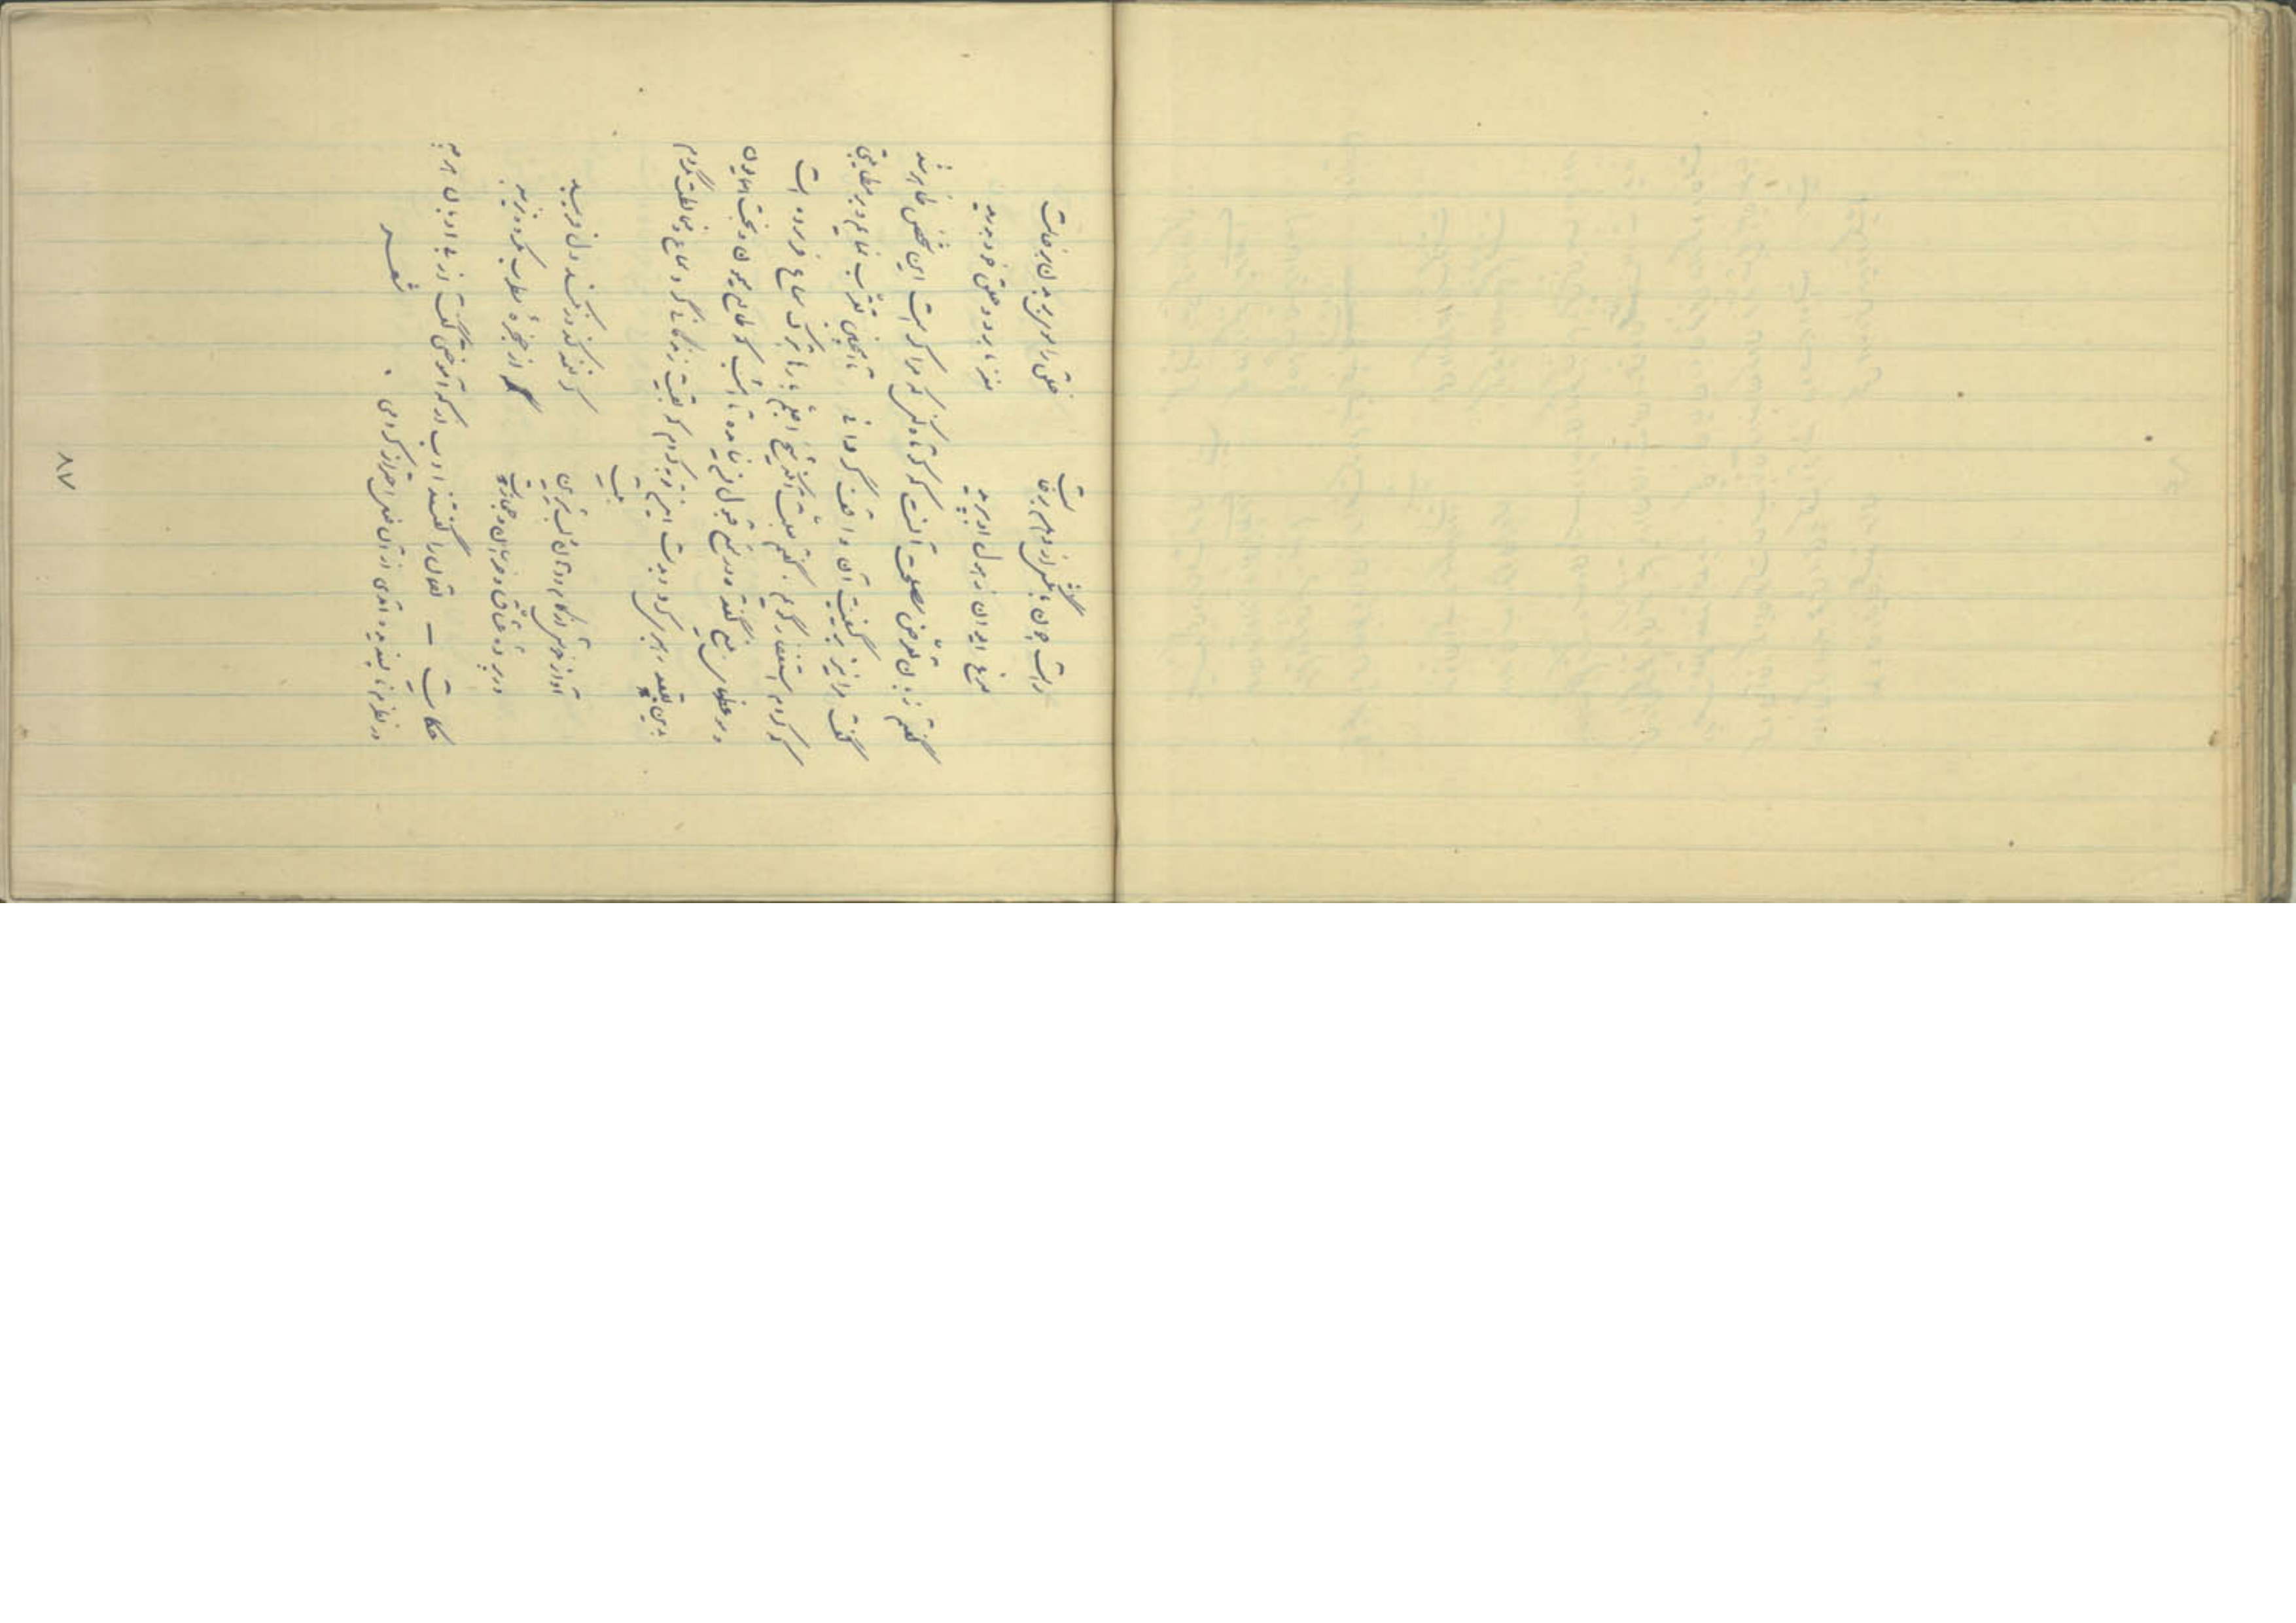 راست چون بانگش از دهن برخاست خلق را موی بر بدن برخاست
مرغ ایوان ز هول او بپرید مغز ما برد و حلق خود بدرید
گفتم زبان تعرض مصلحت آنست که کوتاه کنی که مرا کرامت این شخص ظاهر شد
گفت مرا نیز بر کیفیت آن واقف گردانی تا همچنین تقرب نمایم و بر مطایبتی
که کردم استغفار گویم . گفتم بعلت آنکه شیخ اجلم بارها بترک سماع فرموده است
و موعظهای بلیغ گفته و در سمع قبول من نیامده تا امشب که طالع میمون و بخت همایون
بدین بقعه رهبری کرد و بدست این توبه کردم که بقیت زندگانی گرد سماع و مخالطت نگردم
بیت
آواز خوش از کام و دهان و لب شیرین گر نغمه کند ور نکند دل فریبد
در پرده عشاق و خراسان و حجازست از حنجره مطرب مکروه نزیبد
حکایت – لقمان را گفتند ادب از که آموختی گفت از بی ادبان هرچه
در نظرم ناپسندیده آمدی از آن فعل احتراز کردمی .
شعر
۸۷